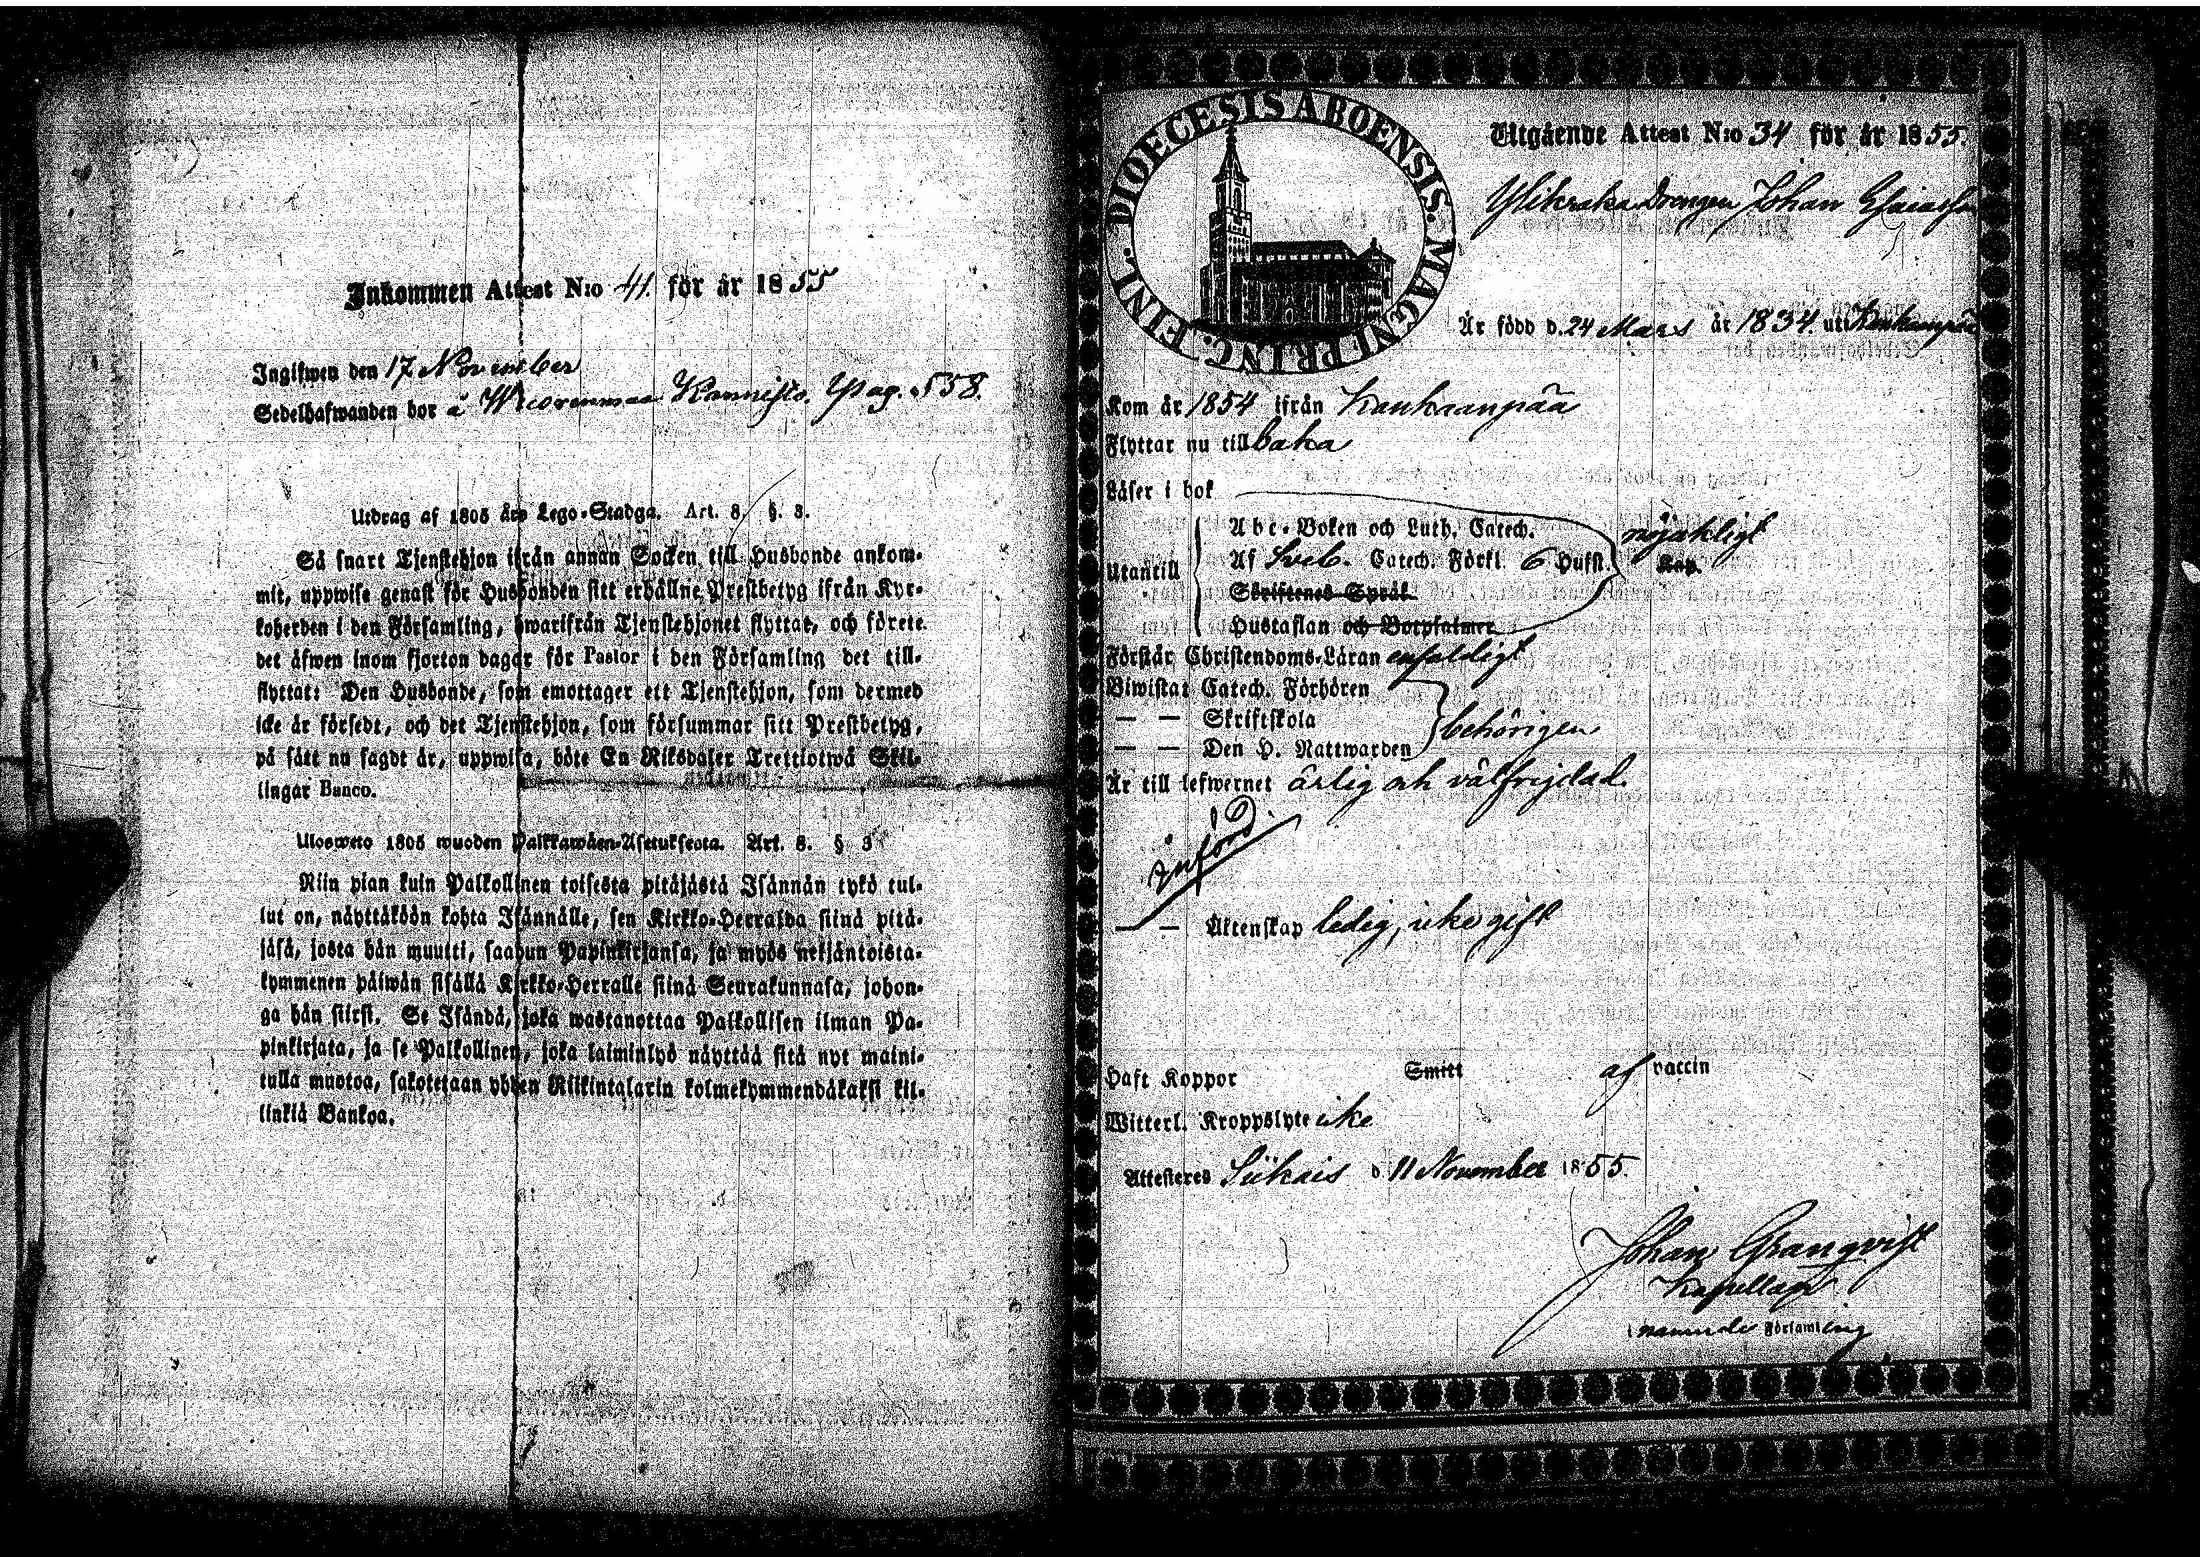 Inkommen Attest N:o 41. för år 1855
Ingifwen den 17 November
Sedelhafwanden bor å Wuorenmaa Kannisto. Pag. 558.
Utdrag af 1805 års Lego-Stadga. Art. 8. §. 3.
Så snart Tjenstehjon ifrån annan Socken till Husbonde ankom-
mit, uppwise genast för Husbonden sitt erhållne Prestbetyg ifrån Kyr-
koherden i den Församling, hwarifrån Tjenstehjonet flyttat, och förete
det äfwen inom fjorton dagar för Pastor i den Församling det till-
flyttat: Den Husbonde, som emottager ett Tjenstehjon, som dermed
icke är försedt, och det Tjenstehjon, som försummar sitt Prestbetyg,
på sätt nu sagdt är, uppwisa, böte En Riksdaler Trettiotwå Skil-
lingar Banco.
Ulosweto 1805 wuoden Palkkawäen-Asetuksesta. Art. 8. § 3
Niin pian kuin Palkollinen toisesta pitäjästä Isännän tykö tul-
lut on, näyttäköön kohta Isännälle, sen Kirkko-Herralda siinä pitä-
jäsä, josta hän muutti, saadun Papinkirjansa, ja myös neljäntoista-
kymmenen päiwän sisällä Kirkko-Herralle siinä Seurakunnasa, johon-
ga hän siirsi. Se Isändä, joka wastanottaa Palkollisen ilman Pa-
pinkirjata, ja se Palkollinen, joka laiminlyö näyttää sitä nyt maini-
tulla muotoa, sakotetaan yhden Riikintalarin kolmekymmendäkaksi kil-
linkiä Bankoa.
DIOECESIS ABOENSIS. MAGNI PRINC. FINL.
Utgående Attest N:o 34 för år 1855.
Drengen Johan
Är född d. 24 Mars år 1834. uti Kankaanpää
Kom år 1854 ifrån Kankaanpää
Flyttar nu tillbaka
Läser i bok
Abc-Boken och Luth. Catech. nöjaktligt
Utantill Af Sveb. Catech. Förkl. 6 Hufst. Kap.
Skriftenes Språk
Hustaflan och Botpsalmer
Förstår Christendoms-Läran enfaldigt
Biwistat Catech. Förhören
— — Skriftskola behörigen
— — Den H. Nattwarden
Är till lefwernet ärlig och välfrejdad.
införd
— — Äktenskap ledig, icke gift
Haft Koppor Smitt af vaccin
Witterl. Kroppslyte icke
Attesteres Siikais d. 11 November 1855.
Johan Granqvist
Kapellan
i nämnde Församling